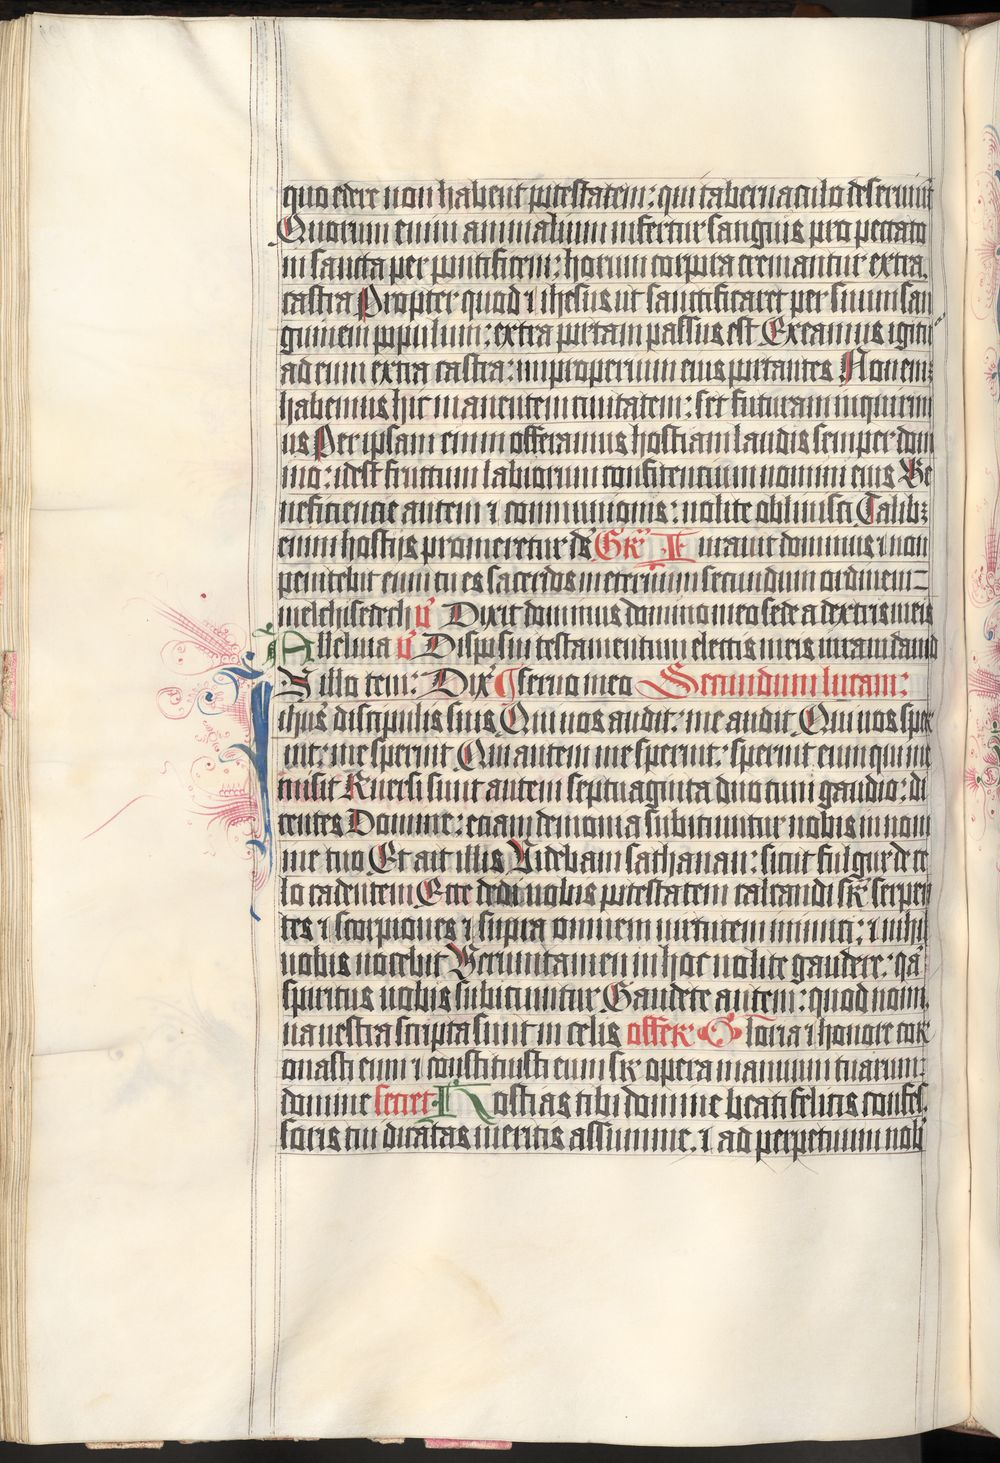 quo edere non habent potestatem: qui tabernaculo deseruiūt
Quorum enim animalium infertur sanguis pro peccato
in sancta per pontificem: horum corpora cremantur extra
castra Propter quod ⁊ ihesus ut sanctificaret per suum san
guinem populum: extra portam passus est Exeamus igitur
ad eum extra castra: improperium eius portantes Non enim:
habemus hic manentem ciuitatem: set futuram inquirim
us Per ipsam enim offeramus hostiam laudis semper dom
ino: id est fructum labiorum confitencium nomini eius Be
neficiencie autem ⁊ communionis: nolite obliuisci Talibꝫ
enim hostijs promeretur ds̄ Gr̄ Iurauit dominus ⁊ non
penitebit eum tu es sacerdos in eternum secundum ordinem
melchisedech v̄ Dixit dominus domino meo sede a dextris meis
Alleluia v̄ Disposui testamentum electis meis iuraui dauid
N illo tem: Dix̄ seruo meo Secundum lucam:
ihūs discipulis suis Qui uos audit: me audit Qui uos sper
nit: me spernit Qui autem me spernit: spernit eum qui me
misit Reuersi sunt autem septuaginta duo cum gaudio: di
centes Domine: eciam demonia subiciuntur nobis in nom
ine tuo Et ait illis Videbam sathanan: sicut fulgur de ce
lo cadentem Ecce dedi uobis potestatem calcandi sr̄ serpen
tes ⁊ scorpiones ⁊ supra omnem uirtutem inimici: ⁊ nihil
uobis nocebit Veruntamen in hoc nolite gaudere: qā
spiritus uobis subiciuntur Gaudete autem: quod nomi
na uestra scripta sunt in celis offer̄ Gloria ⁊ honore cor
onasti eum ⁊ constituisti eum sr̄ opera manuum tuarum:
domine secret Hostias tibi domine beati felicis confes
soris tui dicatas meritis assumme. ⁊ ad perpetuum nob̄